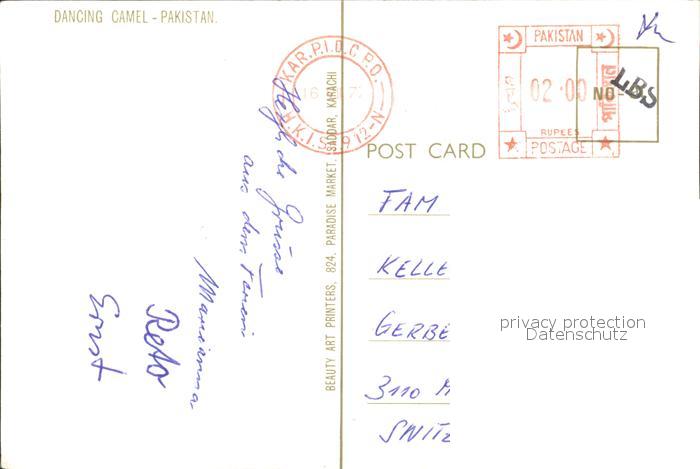 DANCING CAMEL - PAKISTAN.
KAR.P.I.D.C P.O.
H.K.I.S.912-N
Herzliche Grüsse
aus dem Fernen
Marianna
Reto
Ernst
BEAUTY ART PRINTERS, 824, PARADISE MARKET, SADDAR, KARACHI
PAKISTAN
02·00
RUPEES
POSTAGE
NO
LBS
POST CARD
FAM
KELLE
GERBE
3110 M
privacy protection
Datenschutz